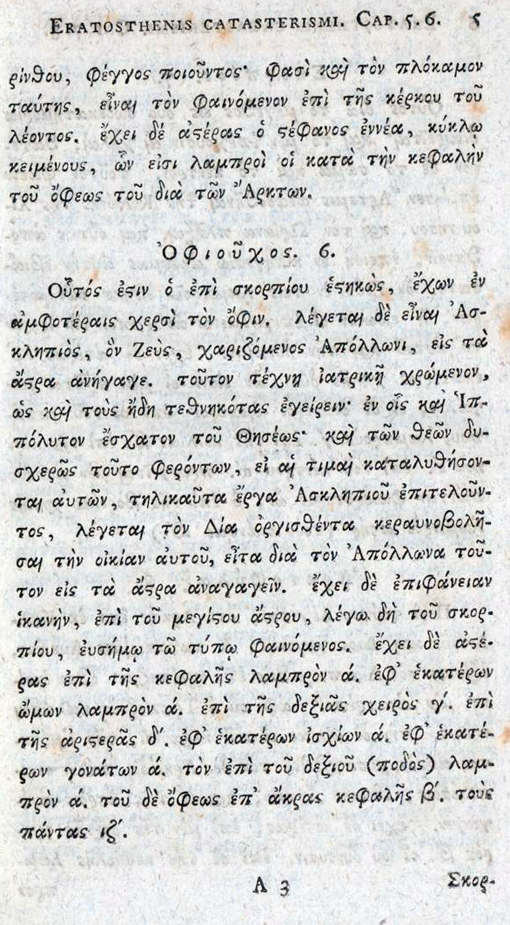 ERATOSTHENIS CATASTERISMI. CAP. 5. 6. 5
ρίνθου, φέγγος ποιοῦντος· φασὶ καὶ τὸν πλόκαμον
ταύτης, εἶναι τὸν φαινόμενον ἐπὶ τῆς κέρκου τοῦ
λέοντος. ἔχει δέ ἀϛέρας ὁ ϛέφανος ἐννέα, κύκλῳ
κειμένους, ὧν εἰσι λαμπροὶ οἱ κατὰ τὴν κεφαλὴν
τοῦ ὄφεως τοῦ διὰ τῶν Ἄρκτων.
Ὀφιοῦχος. 6.
Οὗτός ἐϛιν ὁ ἐπὶ σκορπίου ἑϛηκὼς, ἔχων ἐν
ἀμφοτέραις χερσὶ τὸν ὄφιν. λέγεται δὲ εἶναι Ἀσ-
κληπιὸς, ὃν Ζεὺς, χαριζόμενος Ἀπόλλωνι, εἰς τὰ
ἄϛρα ἀνήγαγε. τοῦτον τέχνῃ ἰατρικῇ χρώμενον,
ὡς καὶ τοὺς ἤδη τεθνηκότας ἐγείρειν· ἐν οἷς καὶ Ἱπ-
πόλυτον ἔσχατον τοῦ Θησέως· καὶ τῶν θεῶν δυ-
σχερῶς τοῦτο φερόντων, εἰ αἱ τιμαὶ καταλυθήσον-
ται ἀυτῶν, τηλικαῦτα ἔργα Ἀσκληπιοῦ ἐπιτελοῦν-
τος, λέγεται τὸν Δία ὀργισθέντα κεραυνοβολῆ-
σαι τὴν οἰκίαν ἀυτοῦ, εἶτα διὰ τὸν Ἀπόλλωνα τοῦ-
τον εἰς τὰ ἄϛρα ἀναγαγεῖν. ἔχει δὲ ἐπιφάνειαν
ἱκανὴν, ἐπὶ τοῦ μεγίϛου ἄϛρου, λέγω δὴ τοῦ σκορ-
πίου, ἐυσήμῳ τῶ τύπῳ φαινόμενος. ἔχει δὲ ἀϛέ-
ρας ἐπὶ τῆς κεφαλῆς λαμπρὸν ά. ἐφ' ἑκατέρων
ὤμων λαμπρὸν ά. ἐπὶ τῆς δεξιᾶς χειρὸς γ'. ἐπὶ
τῆς ἀριϛερᾶς δ'. ἐφ' ἑκατέρων ἰσχίων ά. ἐφ' ἑκατέ-
ρων γονάτων ά. τὸν ἐπὶ τοῦ δεξιοῦ (ποδὸς) λαμ-
πρὸν ά. τοῦ δὲ ὄφεως ἐπ' ἄκρας κεφαλῆς β'. τοὺς
πάντας ιζ'.
A 3 Σκορ-